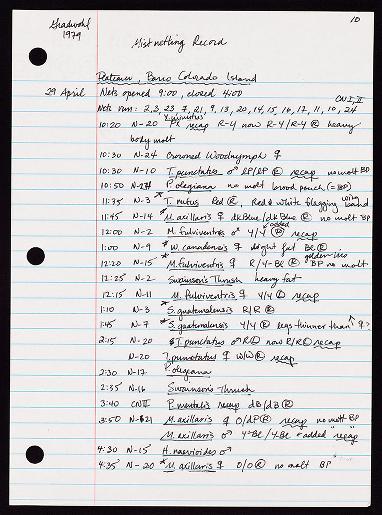 Gradwohl
1979
10
Mistnetting Record
Plateau, Barro Colorado Island
29 April Nets opened 9:00, closed 4:00
CN I, II
Nets run: 2, 3, 23, 7, 21, 9, 13, 20, 14, 15, 16, 17, 11, 10, 24
10:20 N-20 recap R-4 now R-4/R-4 Ⓡ heavy
body molt
10:30 N-24 Crowned Woodnymph ♀
10:30 N-10 T. punctatus ♂ Ⓡ recap no molt BP
10:50 P. elegiana no molt brood pouch (=BP)
11:35 N-3 * T. rufus Red Ⓡ, Red & white flagging band
11:45 N-14 * M. axillaris ♀ dkBlue/dkBlue Ⓡ no molt BP
12:00 N-2 M. fulviventris ♂ Y/Y Ⓡ recap
added
1:00 N-9 * W. canadensis ♀ slight fat Ⓡ
12:20 N-15 * M. fulviventris ♀ R/4-Bl Ⓡ BP no molt
12:25 N-2 Swainson's Thrush heavy fat
12:15 N-11 M. fulviventris ♀ Y/Y Ⓛ recap
1:10 N-3 * S. guatemalensis R/R Ⓡ
1:45 N-7 * S. guatemalensis Y/Y Ⓡ legs thinner than ↑ ♀?
2:15 N-20 T. punctatus ♂ now R/R Ⓛ recap
N-20 T. punctatus ♀ W/W Ⓡ recap
2:30 N-17 P. elegiana
2:35 N-16 Swainson's Thrush
3:40 CNII P. mentalis recap dB/dB Ⓡ
3:50 N-21 M. axillaris ♀ O/dP Ⓡ recap no molt BP
M. axillaris ♂ Y-Bl/Y-Bl Ⓡ added "recap"
4:30 N-15 H. naevioides ♂
4:35 N-20 * M. axillaris ♀ O/O Ⓡ no molt BP